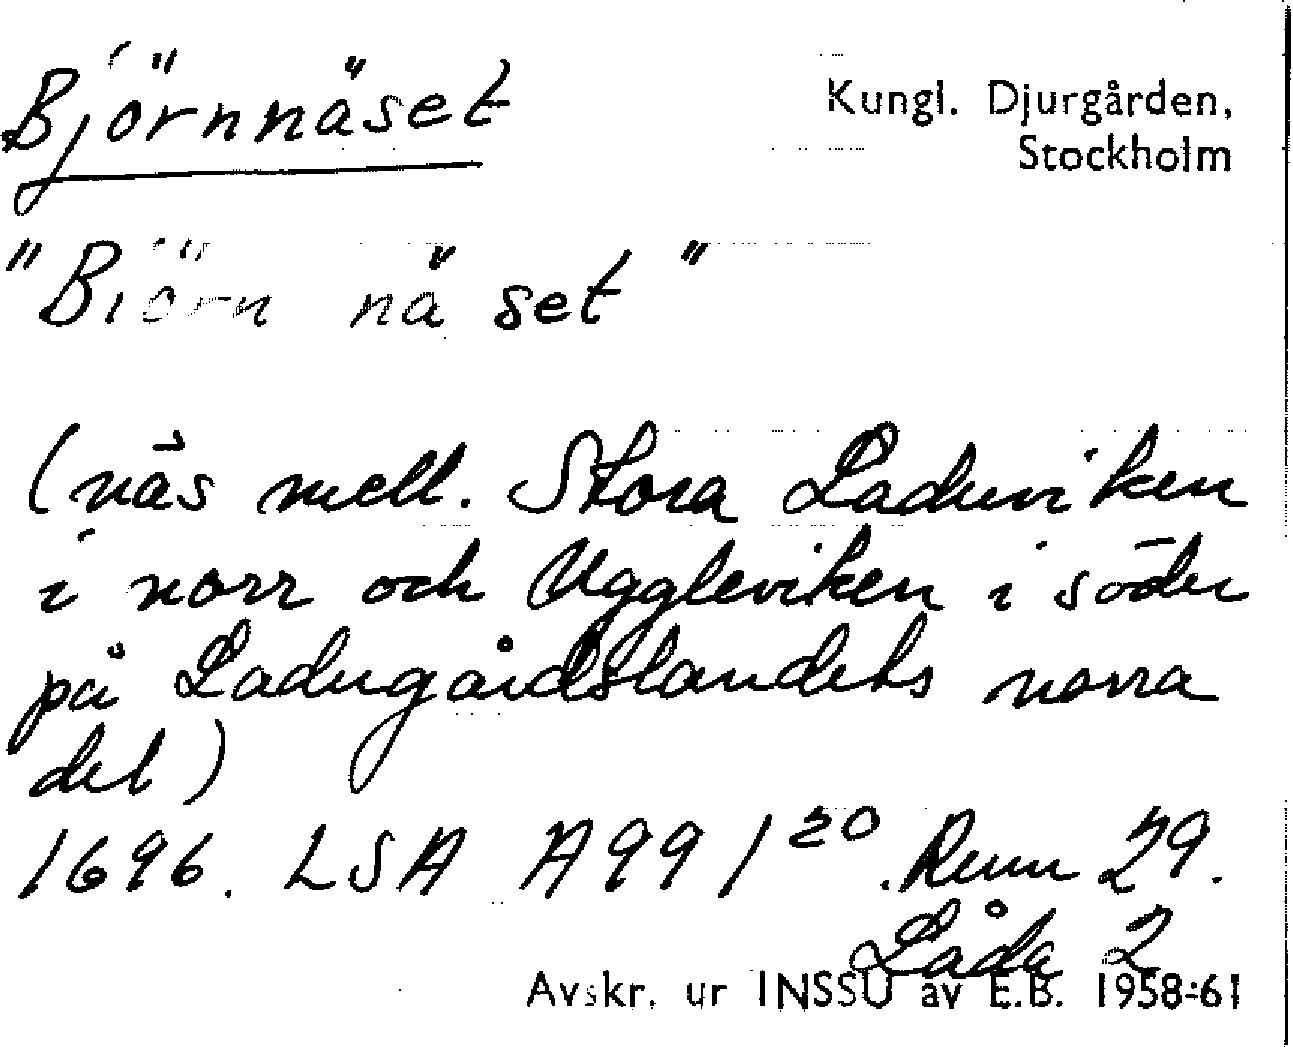 Björnnäset
Kungl. Djurgården,
Stockholm
"Biörn näset"
(näs mell. Stora Laduviken
i norr och Uggleviken i söder
på Ladugårdslandets norra
del)
1696. LSA A99/20. Rum 29.
Låda 2
Avskr. ur INSSU av E.B. 1958-61